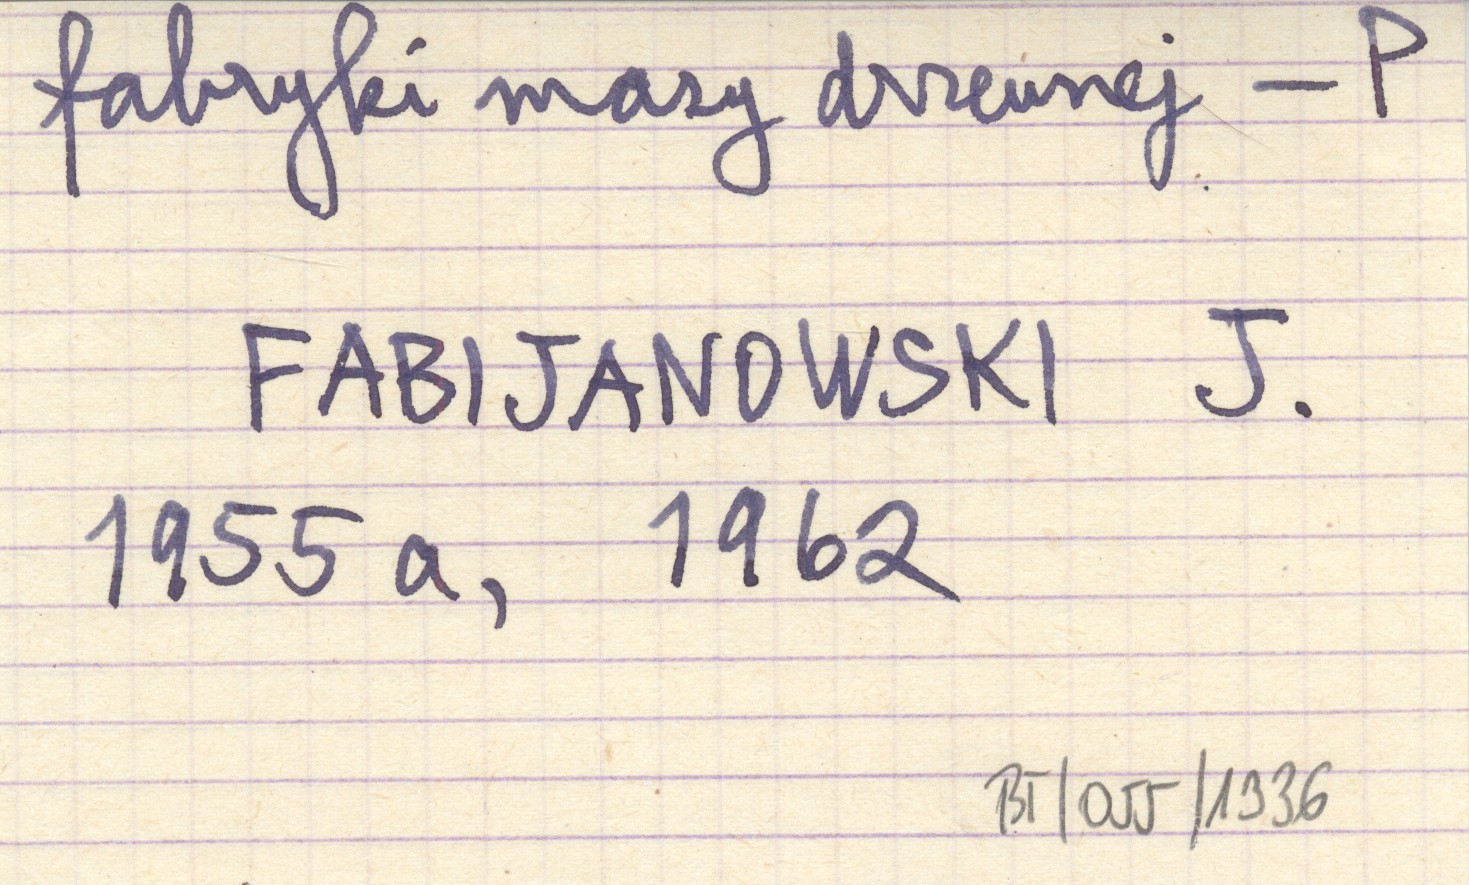 fabryki masy drzewnej – P
FABIJANOWSKI J.
1955a, 1962
BT/055/1336